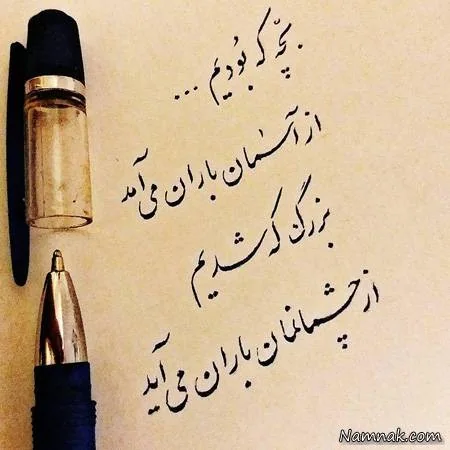 بچّه که بُودیم ...
از آسمان باران می‌آمد
بزرگ که شدیم
از چشمانمان باران می‌آید
Namnak.com